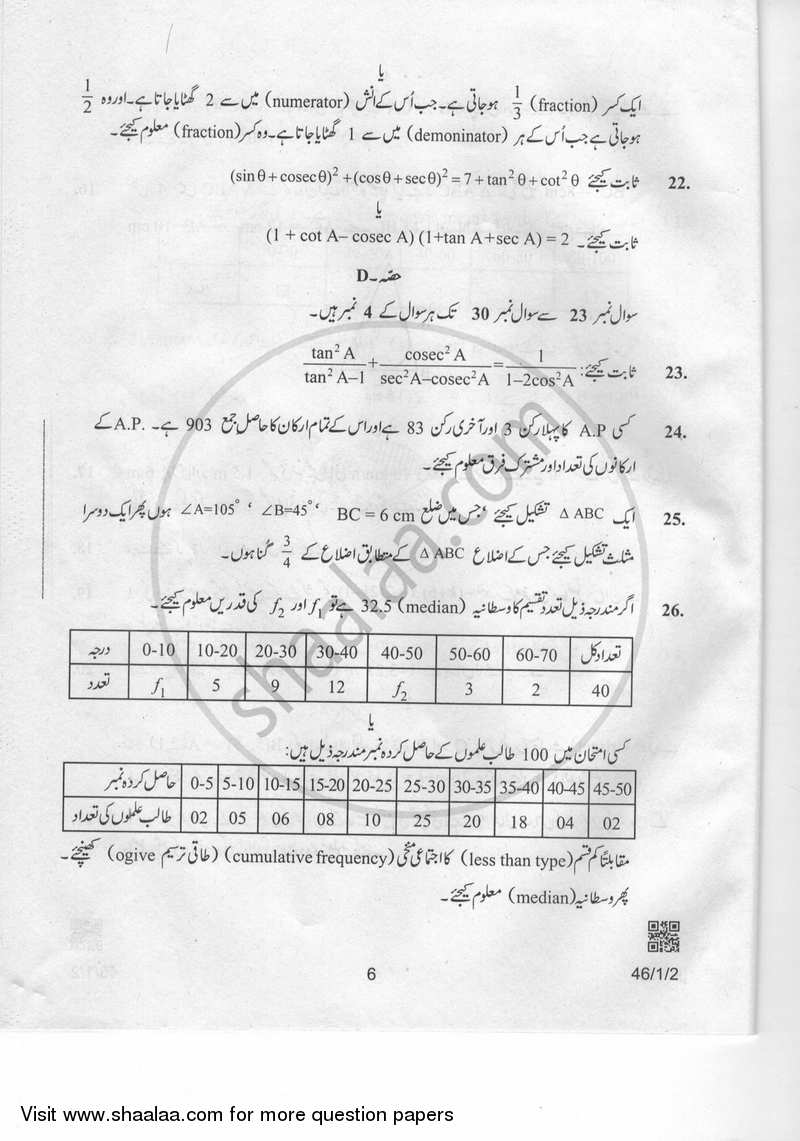 یا
ایک کسر (fraction) 1/3 ہوجاتی ہے۔ جب اُس کے انش (numerator) میں سے 2 گھٹایا جاتا ہے۔ اور وہ 1/2
ہوجاتی ہے جب اُس کے ہر (demoninator) میں سے 1 گھٹایا جاتا ہے۔ وہ کسر (fraction) معلوم کیجئے۔
22. ثابت کیجئے (sin θ + cosec θ)² + (cos θ + sec θ)² = 7 + tan² θ + cot² θ
یا
ثابت کیجئے۔ (1 + cot A – cosec A) (1+tan A+sec A) = 2
حصّہ۔D
سوال نمبر 23 سے سوال نمبر 30 تک ہر سوال کے 4 نمبر ہیں۔
23. ثابت کیجئے: tan² A/(tan² A–1) + cosec² A/(sec²A–cosec²A) = 1/(1–2cos²A)
24. کسی A.P کا پہلا رکن 3 اور آخری رکن 83 ہے اور اس کے تمام ارکان کا حاصل جمع 903 ہے۔ A.P. کے
ارکانوں کی تعداد اور مشترک فرق معلوم کیجئے۔
25. ایک Δ ABC تشکیل کیجئے، جس میں ضلع BC = 6 cm، ∠B=45°، ∠A=105° ہوں پھر ایک دوسرا
مثلث تشکیل کیجئے جس کے اضلاع Δ ABC کے متطابق اضلاع کے 3/4 گنا ہوں۔
26. اگر مندرجہ ذیل تعدد تقسیم کا وسطانیہ (median) 32.5 ہے تو f₁ اور f₂ کی قدریں معلوم کیجئے۔
درجہ 0-10 10-20 20-30 30-40 40-50 50-60 60-70 تعداد کل
تعدد f₁ 5 9 12 f₂ 3 2 40
یا
کسی امتحان میں 100 طالب علموں کے حاصل کردہ نمبر مندرجہ ذیل ہیں:
حاصل کردہ نمبر 0-5 5-10 10-15 15-20 20-25 25-30 30-35 35-40 40-45 45-50
طالب علموں کی تعداد 02 05 06 08 10 25 20 18 04 02
مقابلتاً کم قسم (less than type) کا اجتماعی منحنی (cumulative frequency) (طاقی ترسیم ogive) کھینچئے۔
پھر وسطانیہ (median) معلوم کیجئے۔
6
46/1/2
shaalaa.com
Visit www.shaalaa.com for more question papers